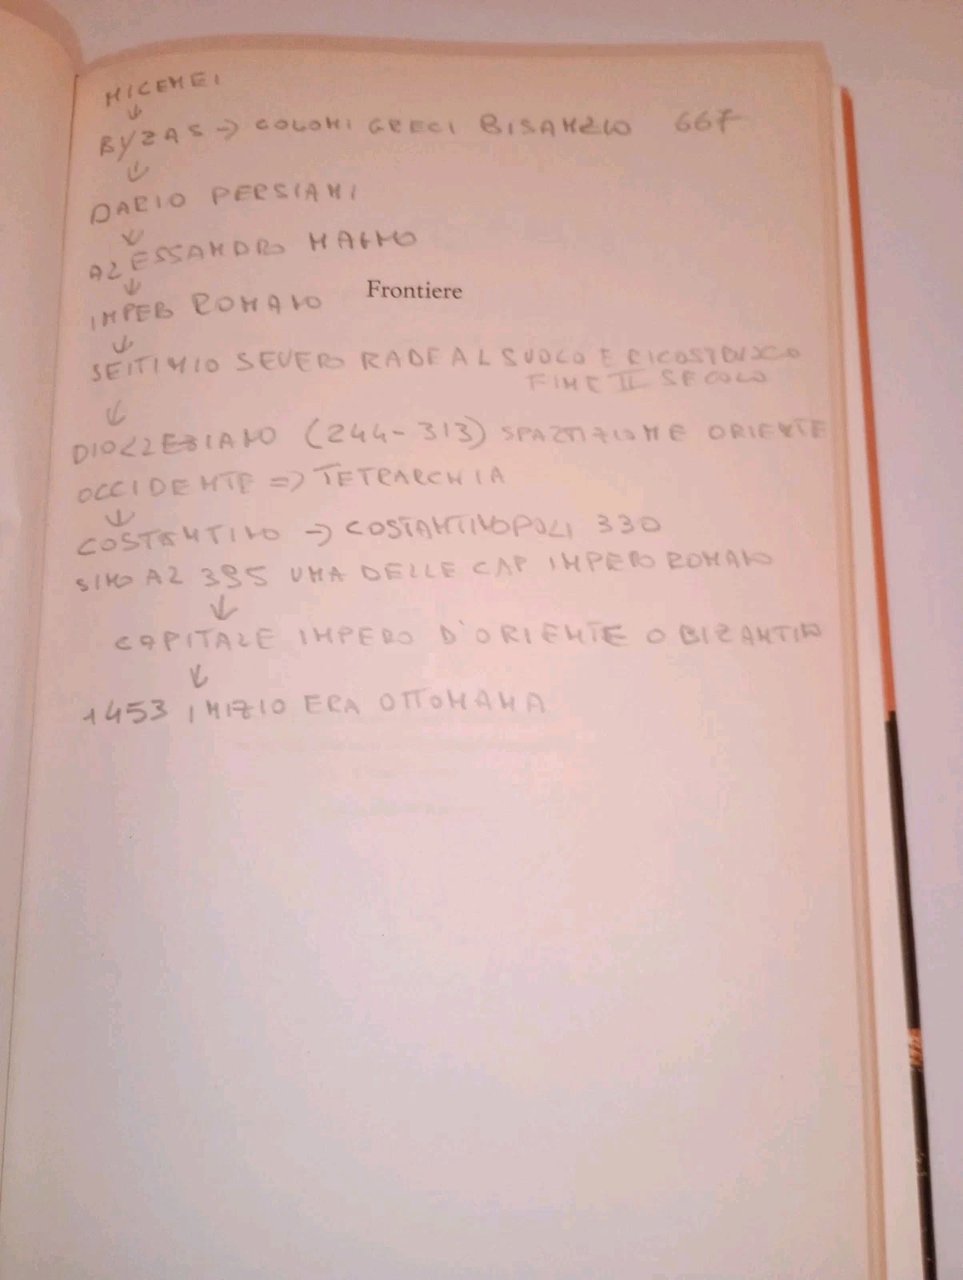 MICENEI
↓
BYZAS → COLONI GRECI BISANZIO 667
↓
DARIO PERSIANI
↓
ALESSANDRO MAGNO
↓
IMPERO ROMANO
Frontiere
↓
SETTIMIO SEVERO RADE AL SUOLO E RICOSTRUISCE
FINE II SECOLO
↓
DIOCLEZIANO (244-313) SPARTIZIONE ORIENTE
OCCIDENTE => TETRARCHIA
↓
COSTANTINO → COSTANTINOPOLI 330
SINO AL 395 UNA DELLE CAP IMPERO ROMANO
↓
CAPITALE IMPERO D'ORIENTE O BIZANTINO
↓
1453 INIZIO ERA OTTOMANA